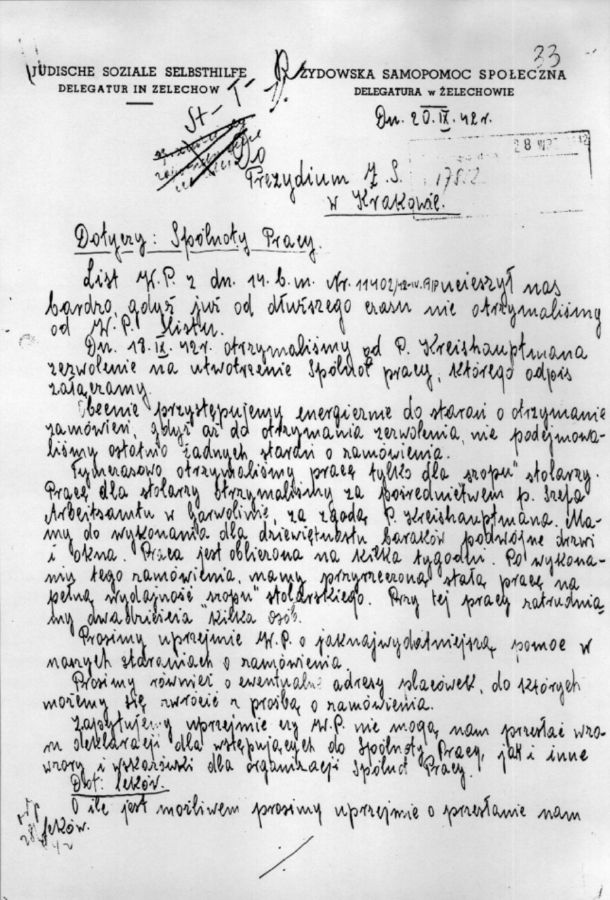 33
JÜDISCHE SOZIALE SELBSTHILFE
DELEGATUR IN ZELECHOW
ŻYDOWSKA SAMOPOMOC SPOŁECZNA
DELEGATURA w ŻELECHOWIE
Dn. 20.IX.42r.
Do
Prezydium Ż.S.
w Krakowie.
Dotyczy: Spólnoty Pracy.
List W.P. z dn. 14.b.m. Nr. 11402/42 ucieszył nas
bardzo, gdyż już od dłuższego czasu nie otrzymaliśmy
od W.P. listu.
Dn. 18.IX.42r. otrzymaliśmy od P. Kreishauptmana
zezwolenie na utworzenie Spólnot pracy, którego odpis
załączamy.
Obecnie przystępujemy energicznie do starań o otrzymanie
zamówień, gdyż aż do otrzymania zezwolenia, nie podejmowa-
liśmy ostatnio żadnych starań o zamówienia.
Tymczasowo otrzymaliśmy pracę tylko dla „szopu" stolarzy.
Pracę dla stolarzy otrzymaliśmy za pośrednictwem p. Szefa
Arbeitsamtu w Garwolinie, za zgodą P. Kreishauptmana. Ma-
my do wykonania dla dziewiętnastu baraków podwójne drzwi
i okna. Praca jest obliczona na kilka tygodni. Po wykona-
niu tego zamówienia, mamy przyrzeczoną stałą pracę na
pełną wydajność „szopu" stolarskiego. Przy tej pracy zatrudnia-
my dwadzieścia kilka osób.
Prosimy uprzejmie W.P. o jaknajwydatniejszą pomoc w
naszych staraniach o zamówienia.
Prosimy również o ewentualne adresy placówek, do których
możemy się zwrócić z prośbą o zamówienia.
Zapytujemy uprzejmie czy W.P. nie mogą nam przesłać wzo-
ru deklaracji dla wstępujących do Spólnoty Pracy, jak i inne
wzory i wskazówki dla organizacji Spólnot Pracy.
Dot: leków.
O ile jest możliwem prosimy uprzejmie o przesłanie nam
leków.